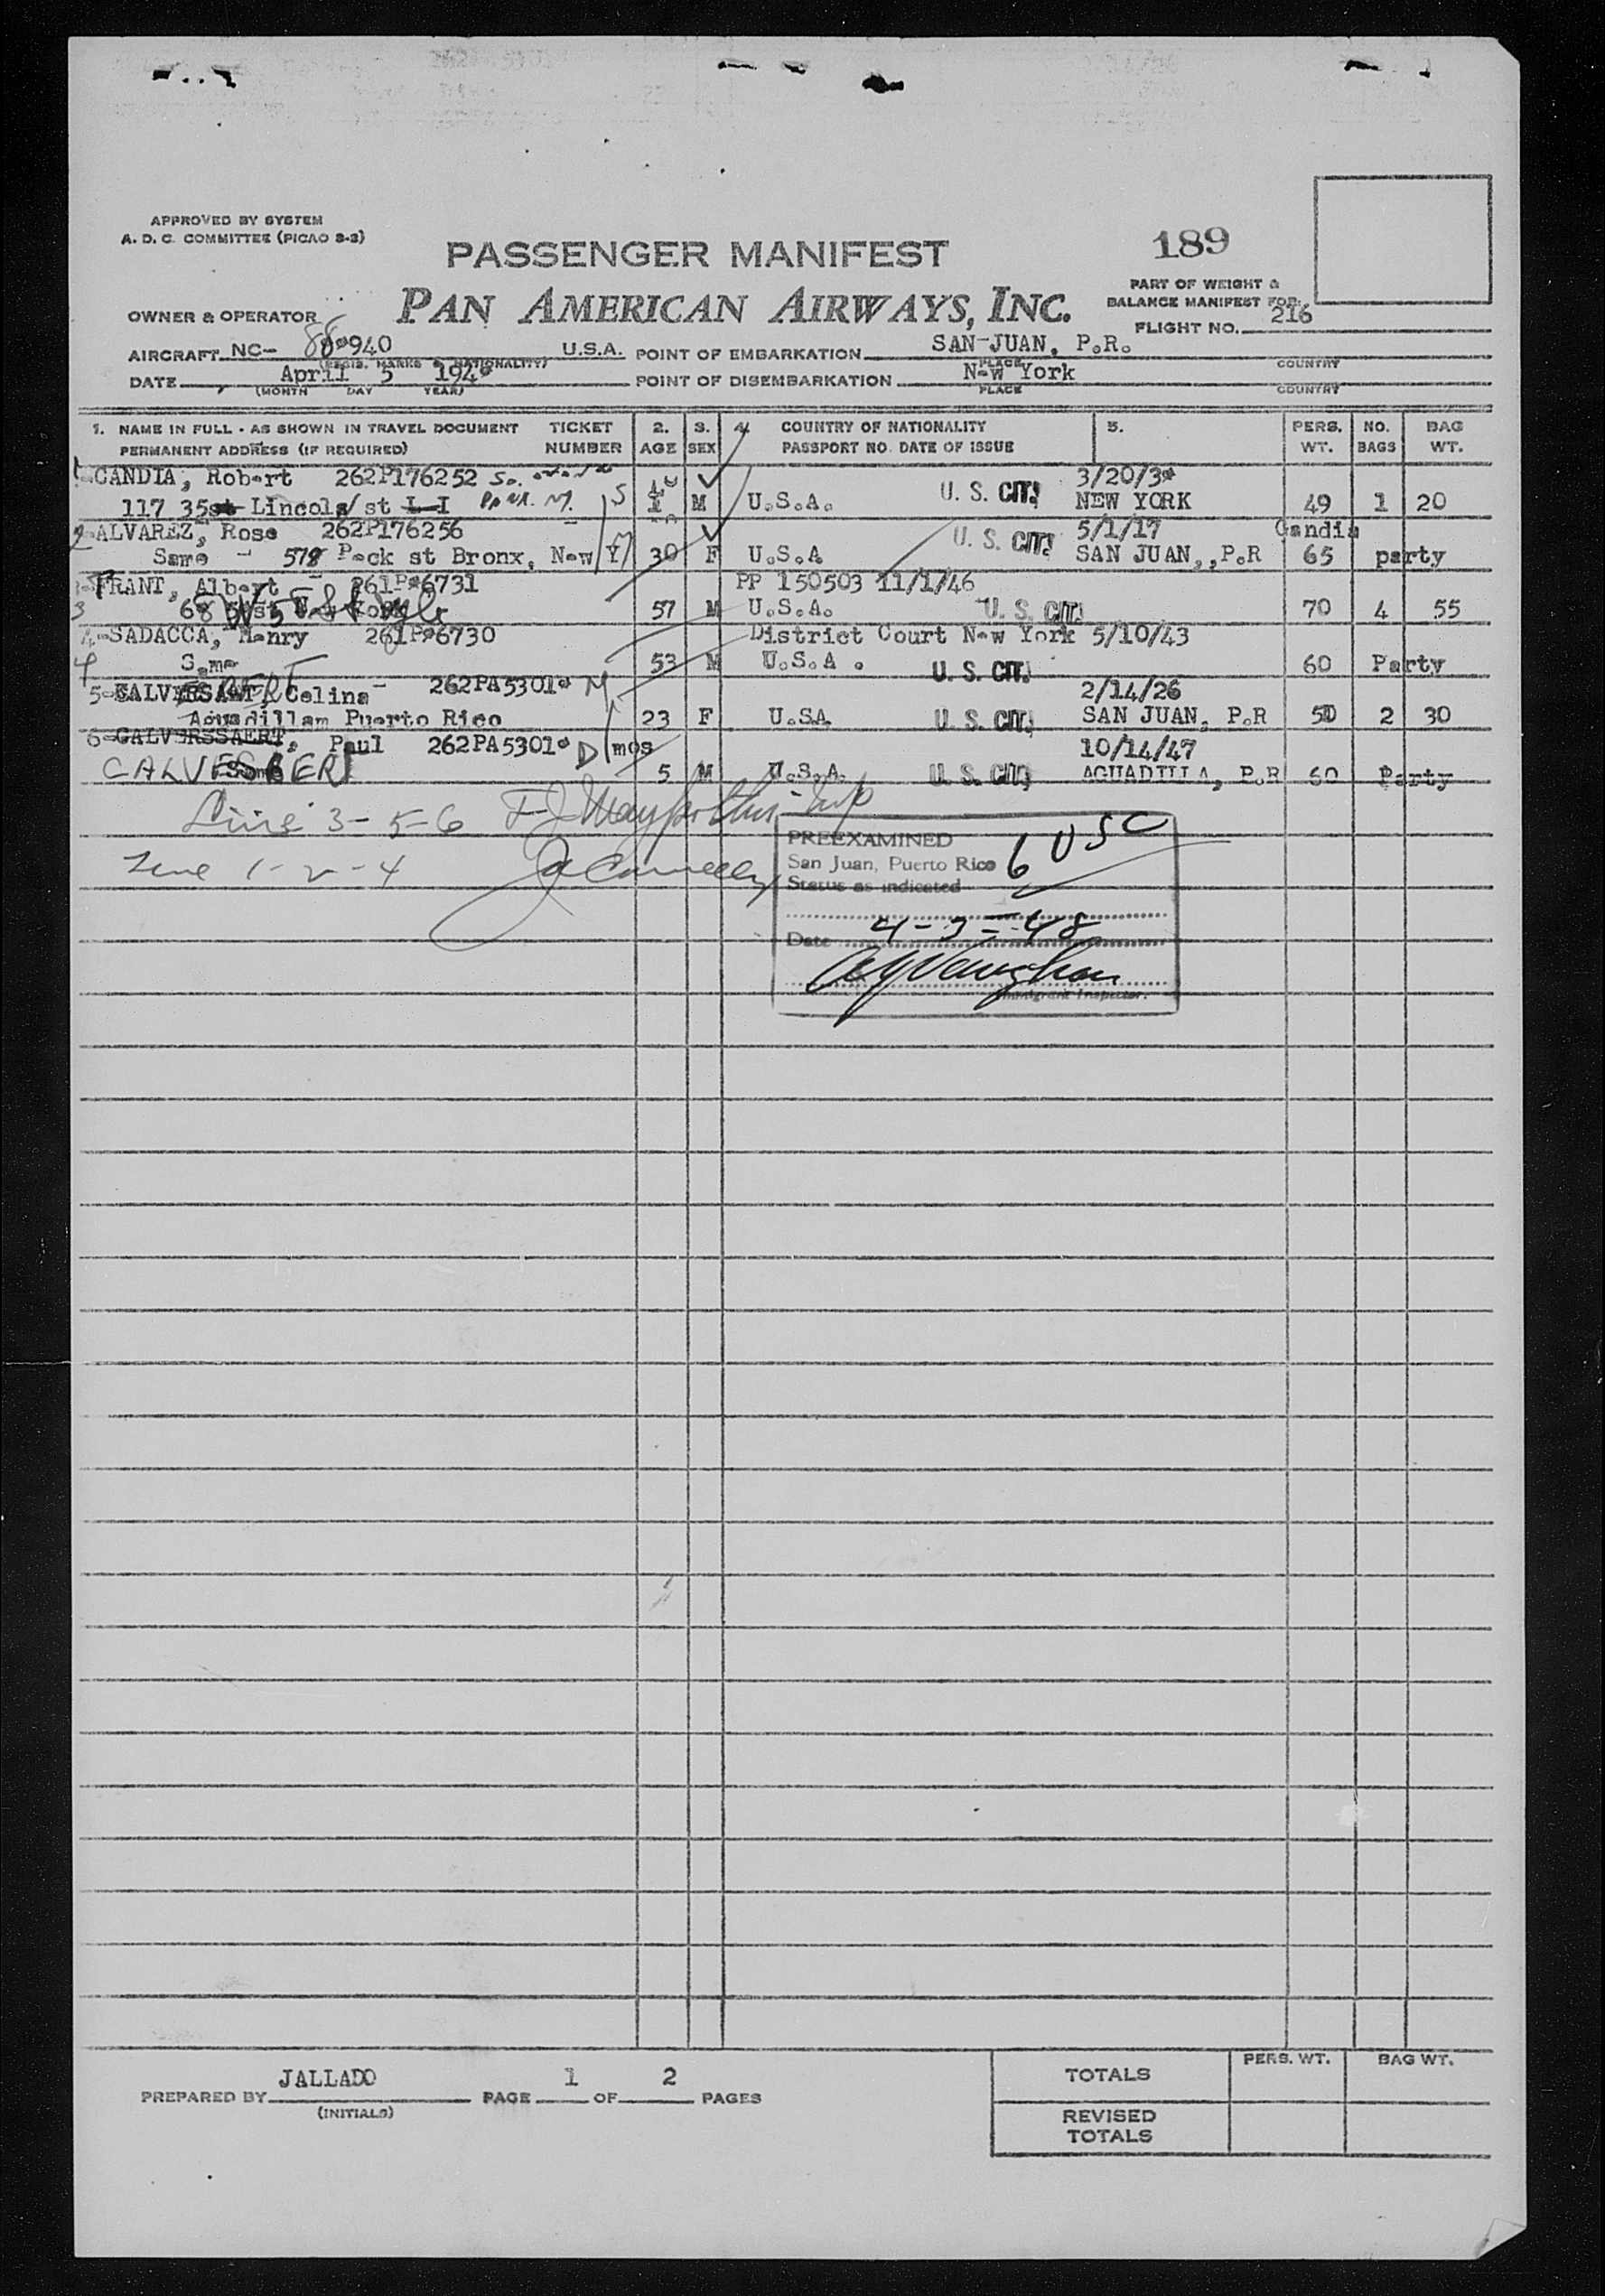 APPROVED BY SYSTEM
A. D. C. COMMITTEE (PICAO 2-3)
PASSENGER MANIFEST
189
PART OF WEIGHT &
BALANCE MANIFEST FOR
OWNER & OPERATOR PAN AMERICAN AIRWAYS, INC.
FLIGHT NO. 216
AIRCRAFT NC- 88940 U.S.A. POINT OF EMBARKATION SAN-JUAN, P.R.
(REGIS. MARKS & NATIONALITY) PLACE COUNTRY
DATE April 5 194* POINT OF DISEMBARKATION New York
(MONTH DAY YEAR) PLACE COUNTRY
1. NAME IN FULL - AS SHOWN IN TRAVEL DOCUMENT TICKET 2. 3. 4. COUNTRY OF NATIONALITY 5. PERS. NO. BAG
PERMANENT ADDRESS (IF REQUIRED) NUMBER AGE SEX PASSPORT NO. DATE OF ISSUE WT. BAGS WT.
1-CANDIA, Robert 262P176252 So. 3/20/3*
117 35st Lincoln/st L I S M U.S.A. U. S. CIT. NEW YORK 49 1 20
2-ALVAREZ, Rose 262P176256 5/1/17 Candia
Same - 578 Peck st Bronx, New Y 30 F U.S.A U. S. CIT. SAN JUAN,,P.R 65 party
3-FRANT, Albert - 261P*6731 PP 150503 11/1/46
68 57 M U.S.A. U. S. CIT. 70 4 55
4-SADACCA, Henry 261P*6730 District Court New York 5/10/43
Same 53 M U.S.A . U. S. CIT. 60 Party
5- Celina - 262PA5301* M 2/14/26
Aguadillam Puerto Rico 23 F U.SA U. S. CIT. SAN JUAN, P.R 50 2 30
6-CALVERSSAERT, Paul 262PA5301* mos 10/14/47
CALVESBERT Same 5 M U.S.A. U. S. CIT. AGUADILLA, P.R 60 Party
Line 3-5-6
Line 1-2-4
PREEXAMINED 6 USC
San Juan, Puerto Rico
Status as indicated
Date 4-5-48
Immigrant Inspector.
JALLADO 1 2
PREPARED BY PAGE OF PAGES
(INITIALS)
PERS. WT. BAG WT.
TOTALS
REVISED
TOTALS